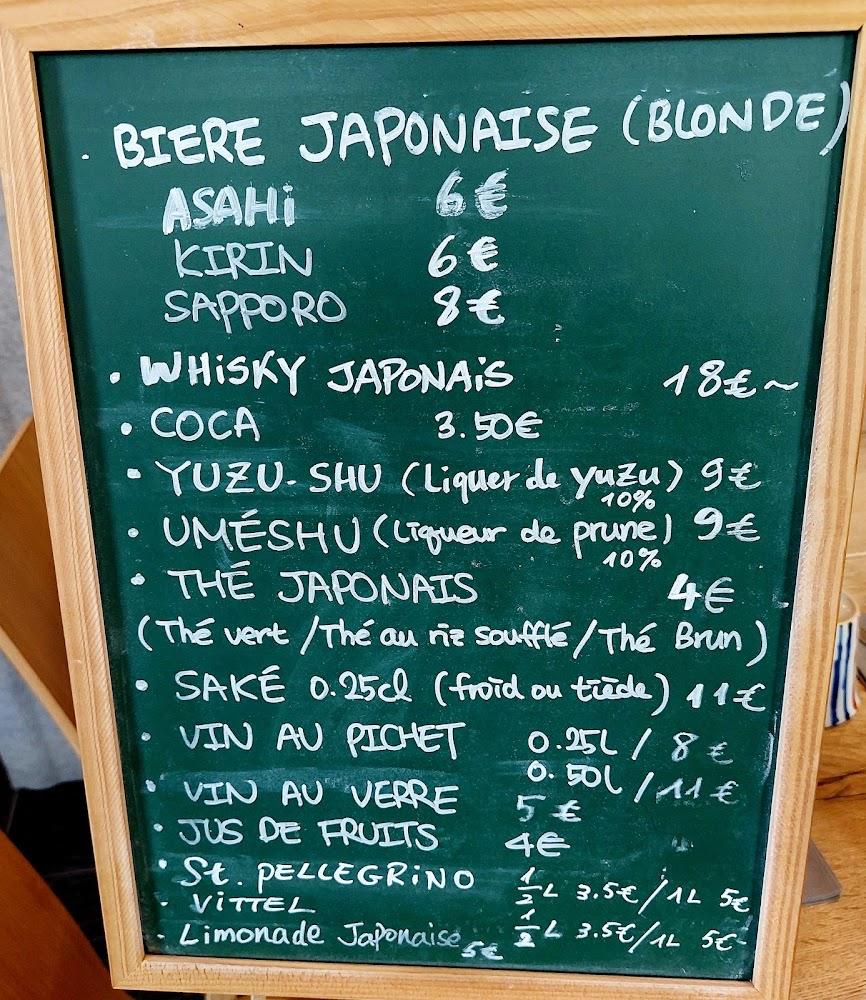 · BIERE JAPONAISE (BLONDE)
ASAHi 6€
KIRIN 6€
SAPPORO 8€
· WHiSKY JAPONAiS 18€~
· COCA 3.50€
· YUZU-SHU (Liquer de yuzu) 9€
10%
· UMÉSHU (Liqueur de prune) 9€
10%
· THÉ JAPONAIS 4€
(Thé vert / Thé au riz soufflé / Thé Brun)
· SAKÉ 0.25cl (froid ou tiède) 11€
· VIN AU PICHET 0.25L / 8€
0.50L / 11€
· VIN AU VERRE 5€
· JUS DE FRUITS 4€
· St. PELLEGRiNO 1/2 L 3.5€/1L 5€
· ViTTEL 1/2 L 3.5€/1L 5€
· Limonade Japonaise 5€